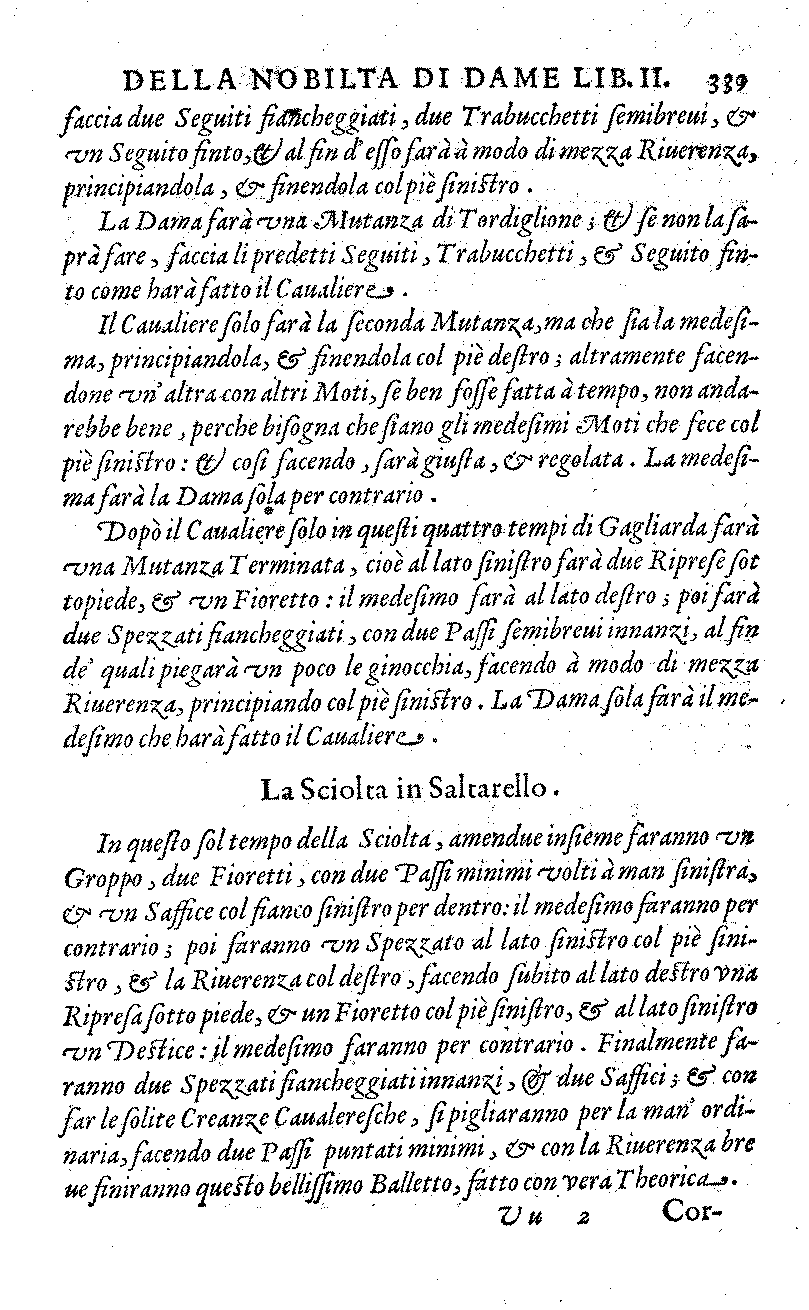 DELLA NOBILTA DI DAME LIB. II. 339
faccia due Seguiti fiancheggiati, due Trabucchetti ſemibreui, &
vn Seguito finto, & al fin d'eſſo farà à modo di mezza Riuerenza,
principiandola, & finendola col piè ſiniſtro.
La Dama farà vna Mutanza di Tordiglione; & ſe non la ſa-
prà fare, faccia li predetti Seguiti, Trabucchetti, & Seguito fin-
to come harà fatto il Caualiere.
Il Caualiere ſolo farà la ſeconda Mutanza, ma che ſia la medeſi-
ma, principiandola, & finendola col piè deſtro; altramente facen-
done vn' altra con altri Moti, ſe ben foſſe fatta à tempo, non anda-
rebbe bene, perche biſogna che ſiano gli medeſimi Moti che fece col
piè ſiniſtro: & coſi facendo, ſarà giuſta, & regolata. La medeſi-
ma farà la Dama ſola per contrario.
Dopò il Caualiere ſolo in queſti quattro tempi di Gagliarda farà
vna Mutanza Terminata, cioè al lato ſiniſtro farà due Ripreſe ſot
topiede, & vn Fioretto: il medeſimo farà al lato deſtro; poi farà
due Spezzati fiancheggiati, con due Paſſi ſemibreui innanzi, al fin
de' quali piegarà vn poco le ginocchia, facendo à modo di mezza
Riuerenza, principiando col piè ſiniſtro. La Dama ſola farà il me-
deſimo che harà fatto il Caualiere.
La Sciolta in Saltarello.
In queſto ſol tempo della Sciolta, amendue inſieme faranno vn
Groppo, due Fioretti, con due Paſſi minimi volti à man ſiniſtra,
& vn Saffice col fianco ſiniſtro per dentro: il medeſimo faranno per
contrario; poi faranno vn Spezzato al lato ſiniſtro col piè ſini-
ſtro, & la Riuerenza col deſtro, facendo ſubito al lato deſtro vna
Ripreſa ſotto piede, & un Fioretto col piè ſiniſtro, & al lato ſiniſtro
vn Deſtice: il medeſimo faranno per contrario. Finalmente fa-
ranno due Spezzati fiancheggiati innanzi, & due Saffici; & con
far le ſolite Creanze Caualereſche, ſi pigliaranno per la man' ordi-
naria, facendo due Paſſi puntati minimi, & con la Riuerenza bre
ue finiranno queſto belliſſimo Balletto, fatto con vera Theorica.
Vu 2 Cor-